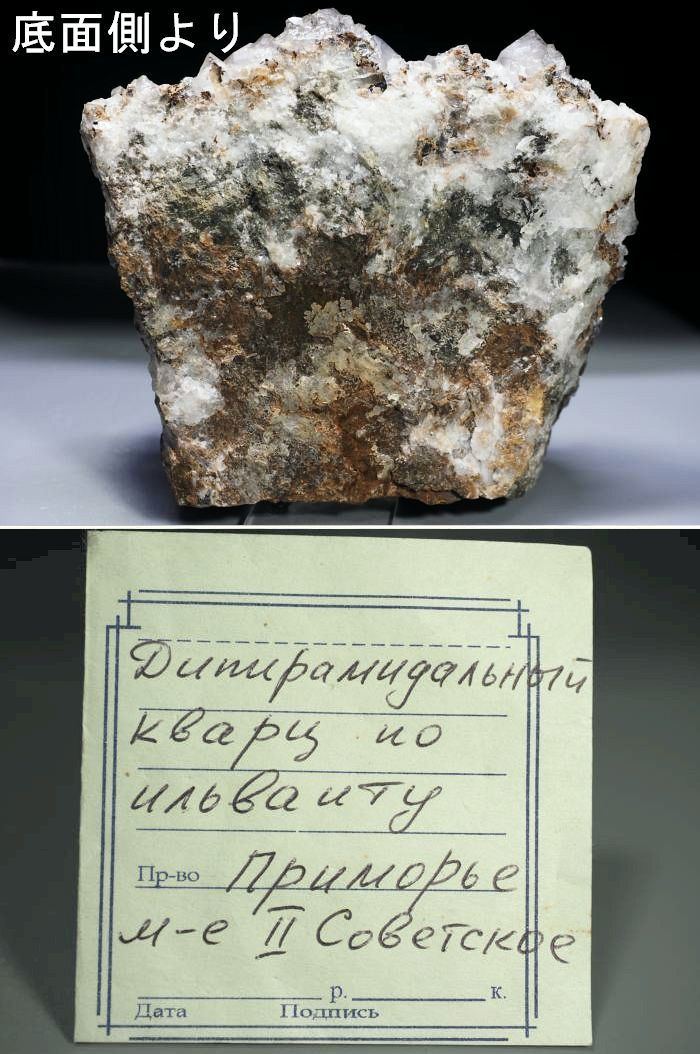 底面側より
Дипирамидальный
кварц по
ильваиту
Пр-во Приморье
м-е II Советское
р. к.
Дата Подпись